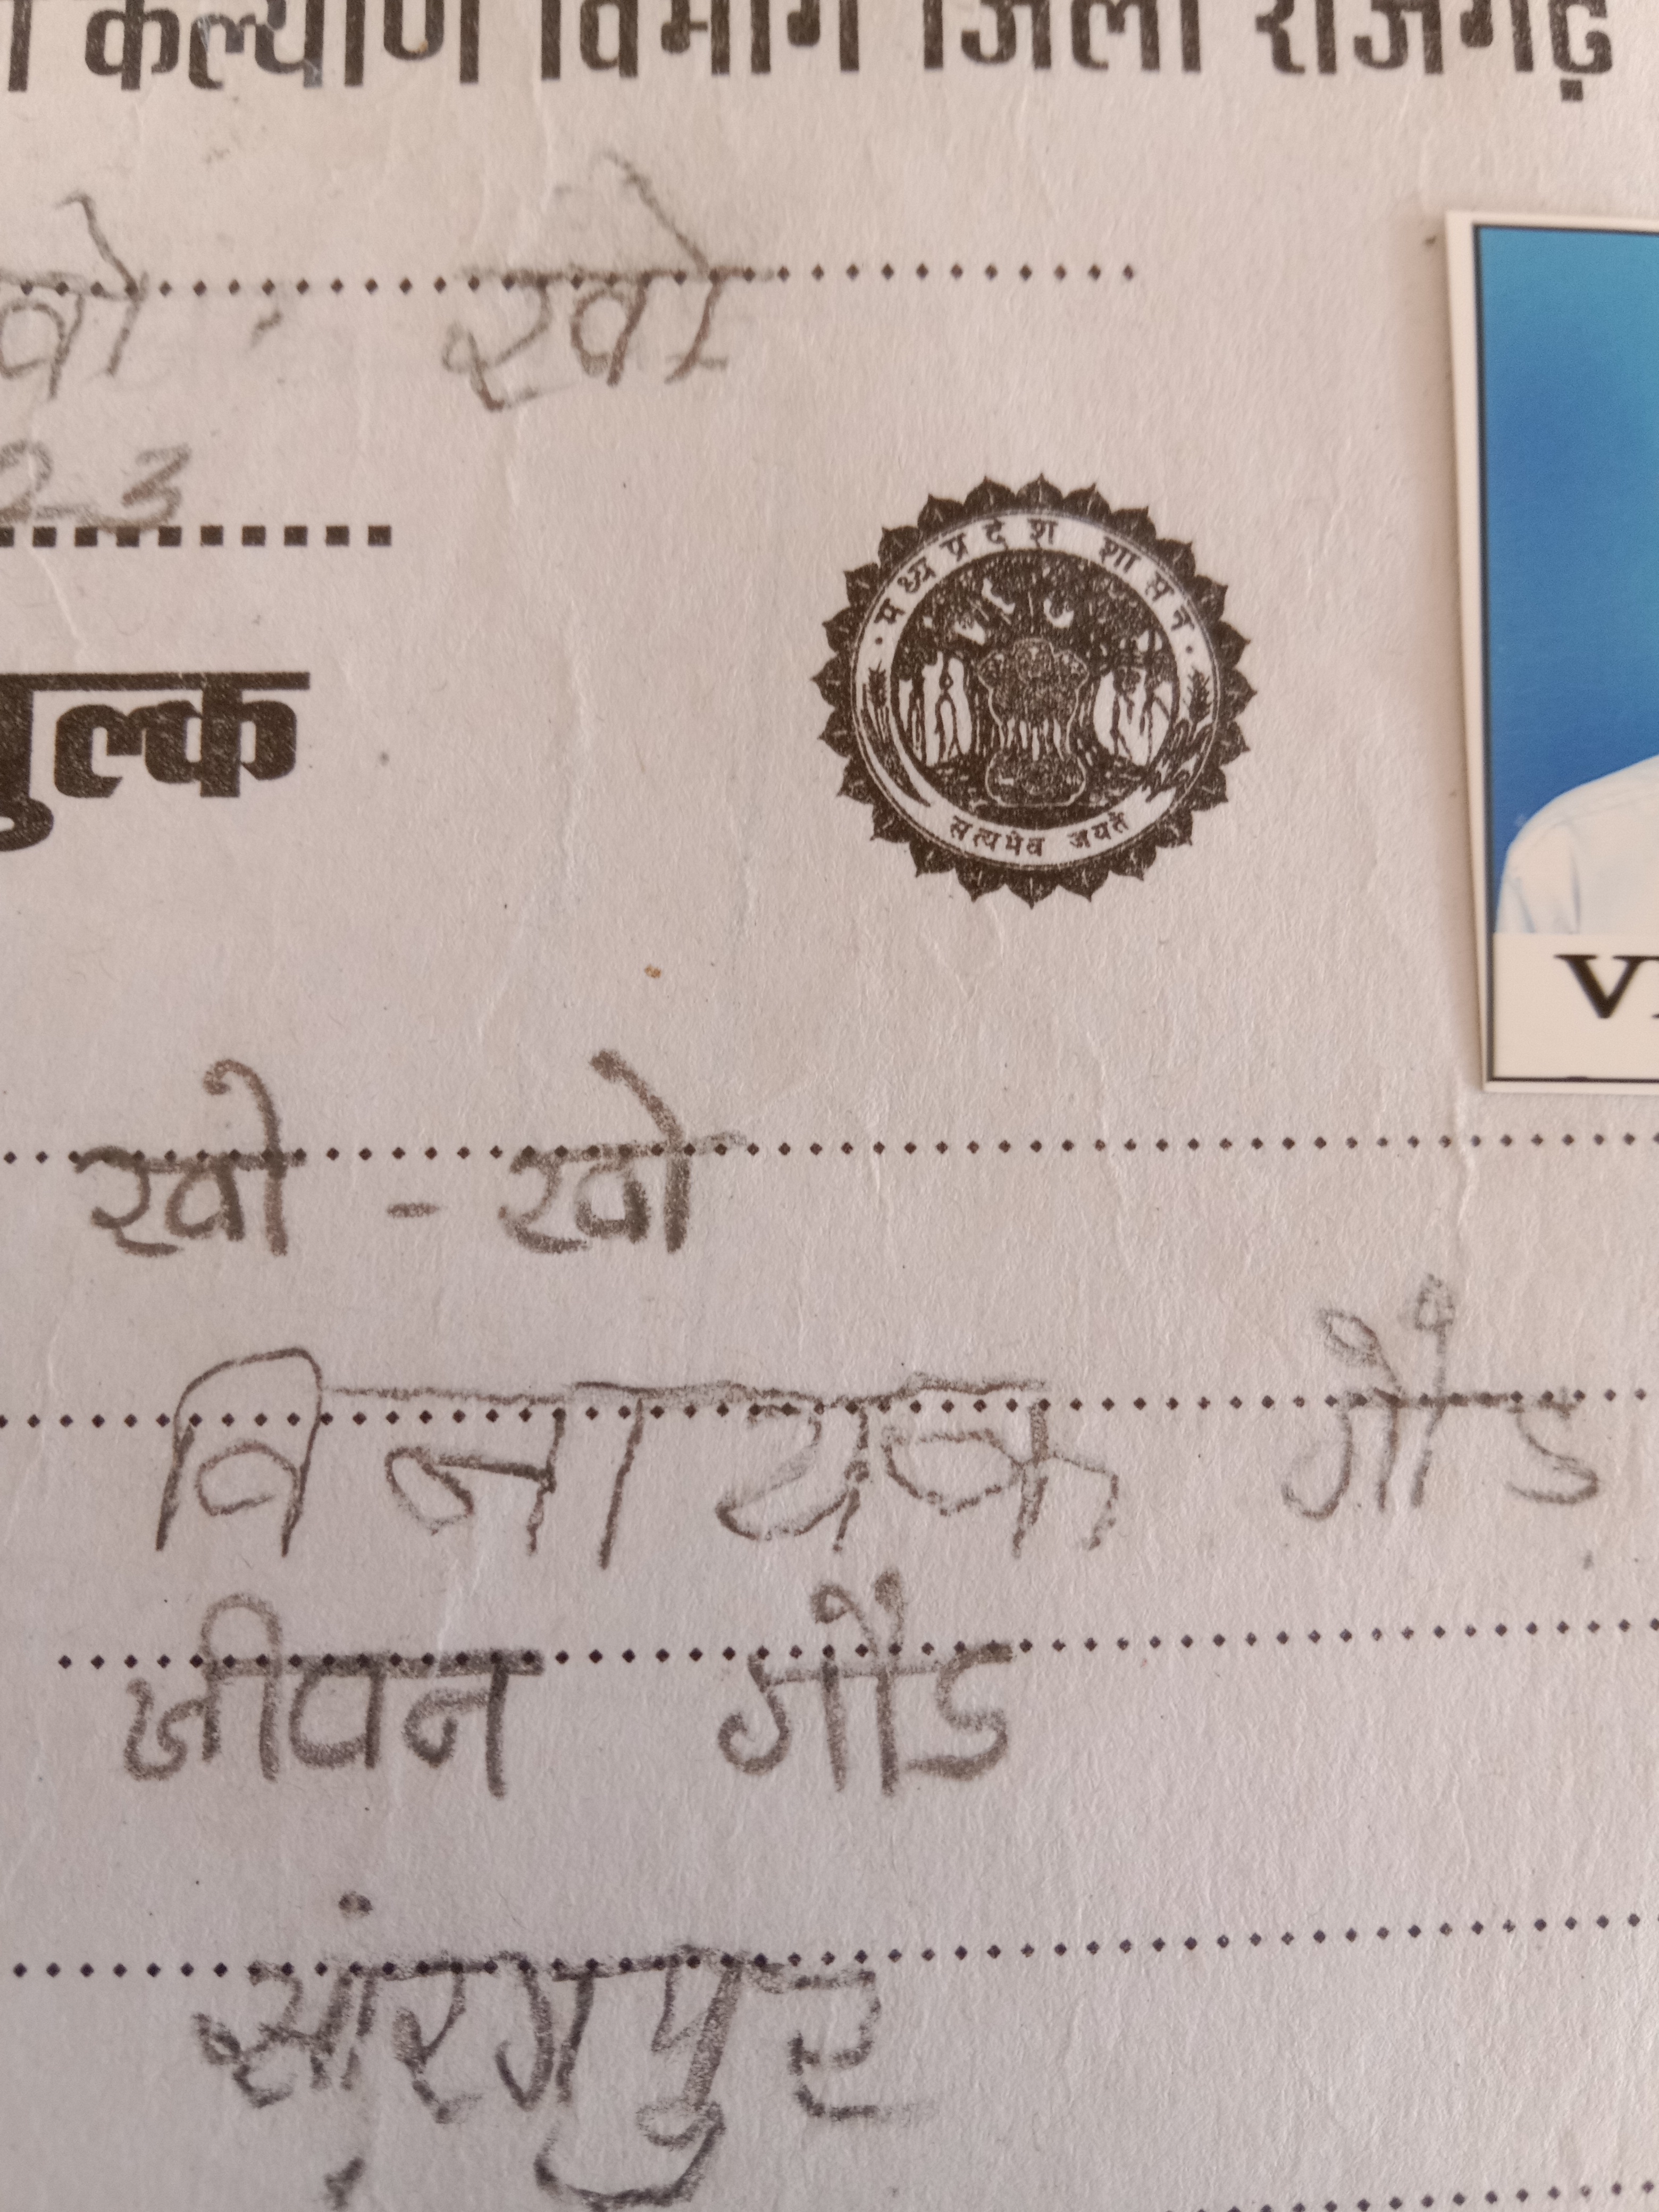 कल्याण विभाग जिला राजगढ़
खो
23
मध्यप्रदेश शासन
सत्यमेव जयते
खो - खो
विनायक गौंड
जीवन गौंड
सांरगपुर